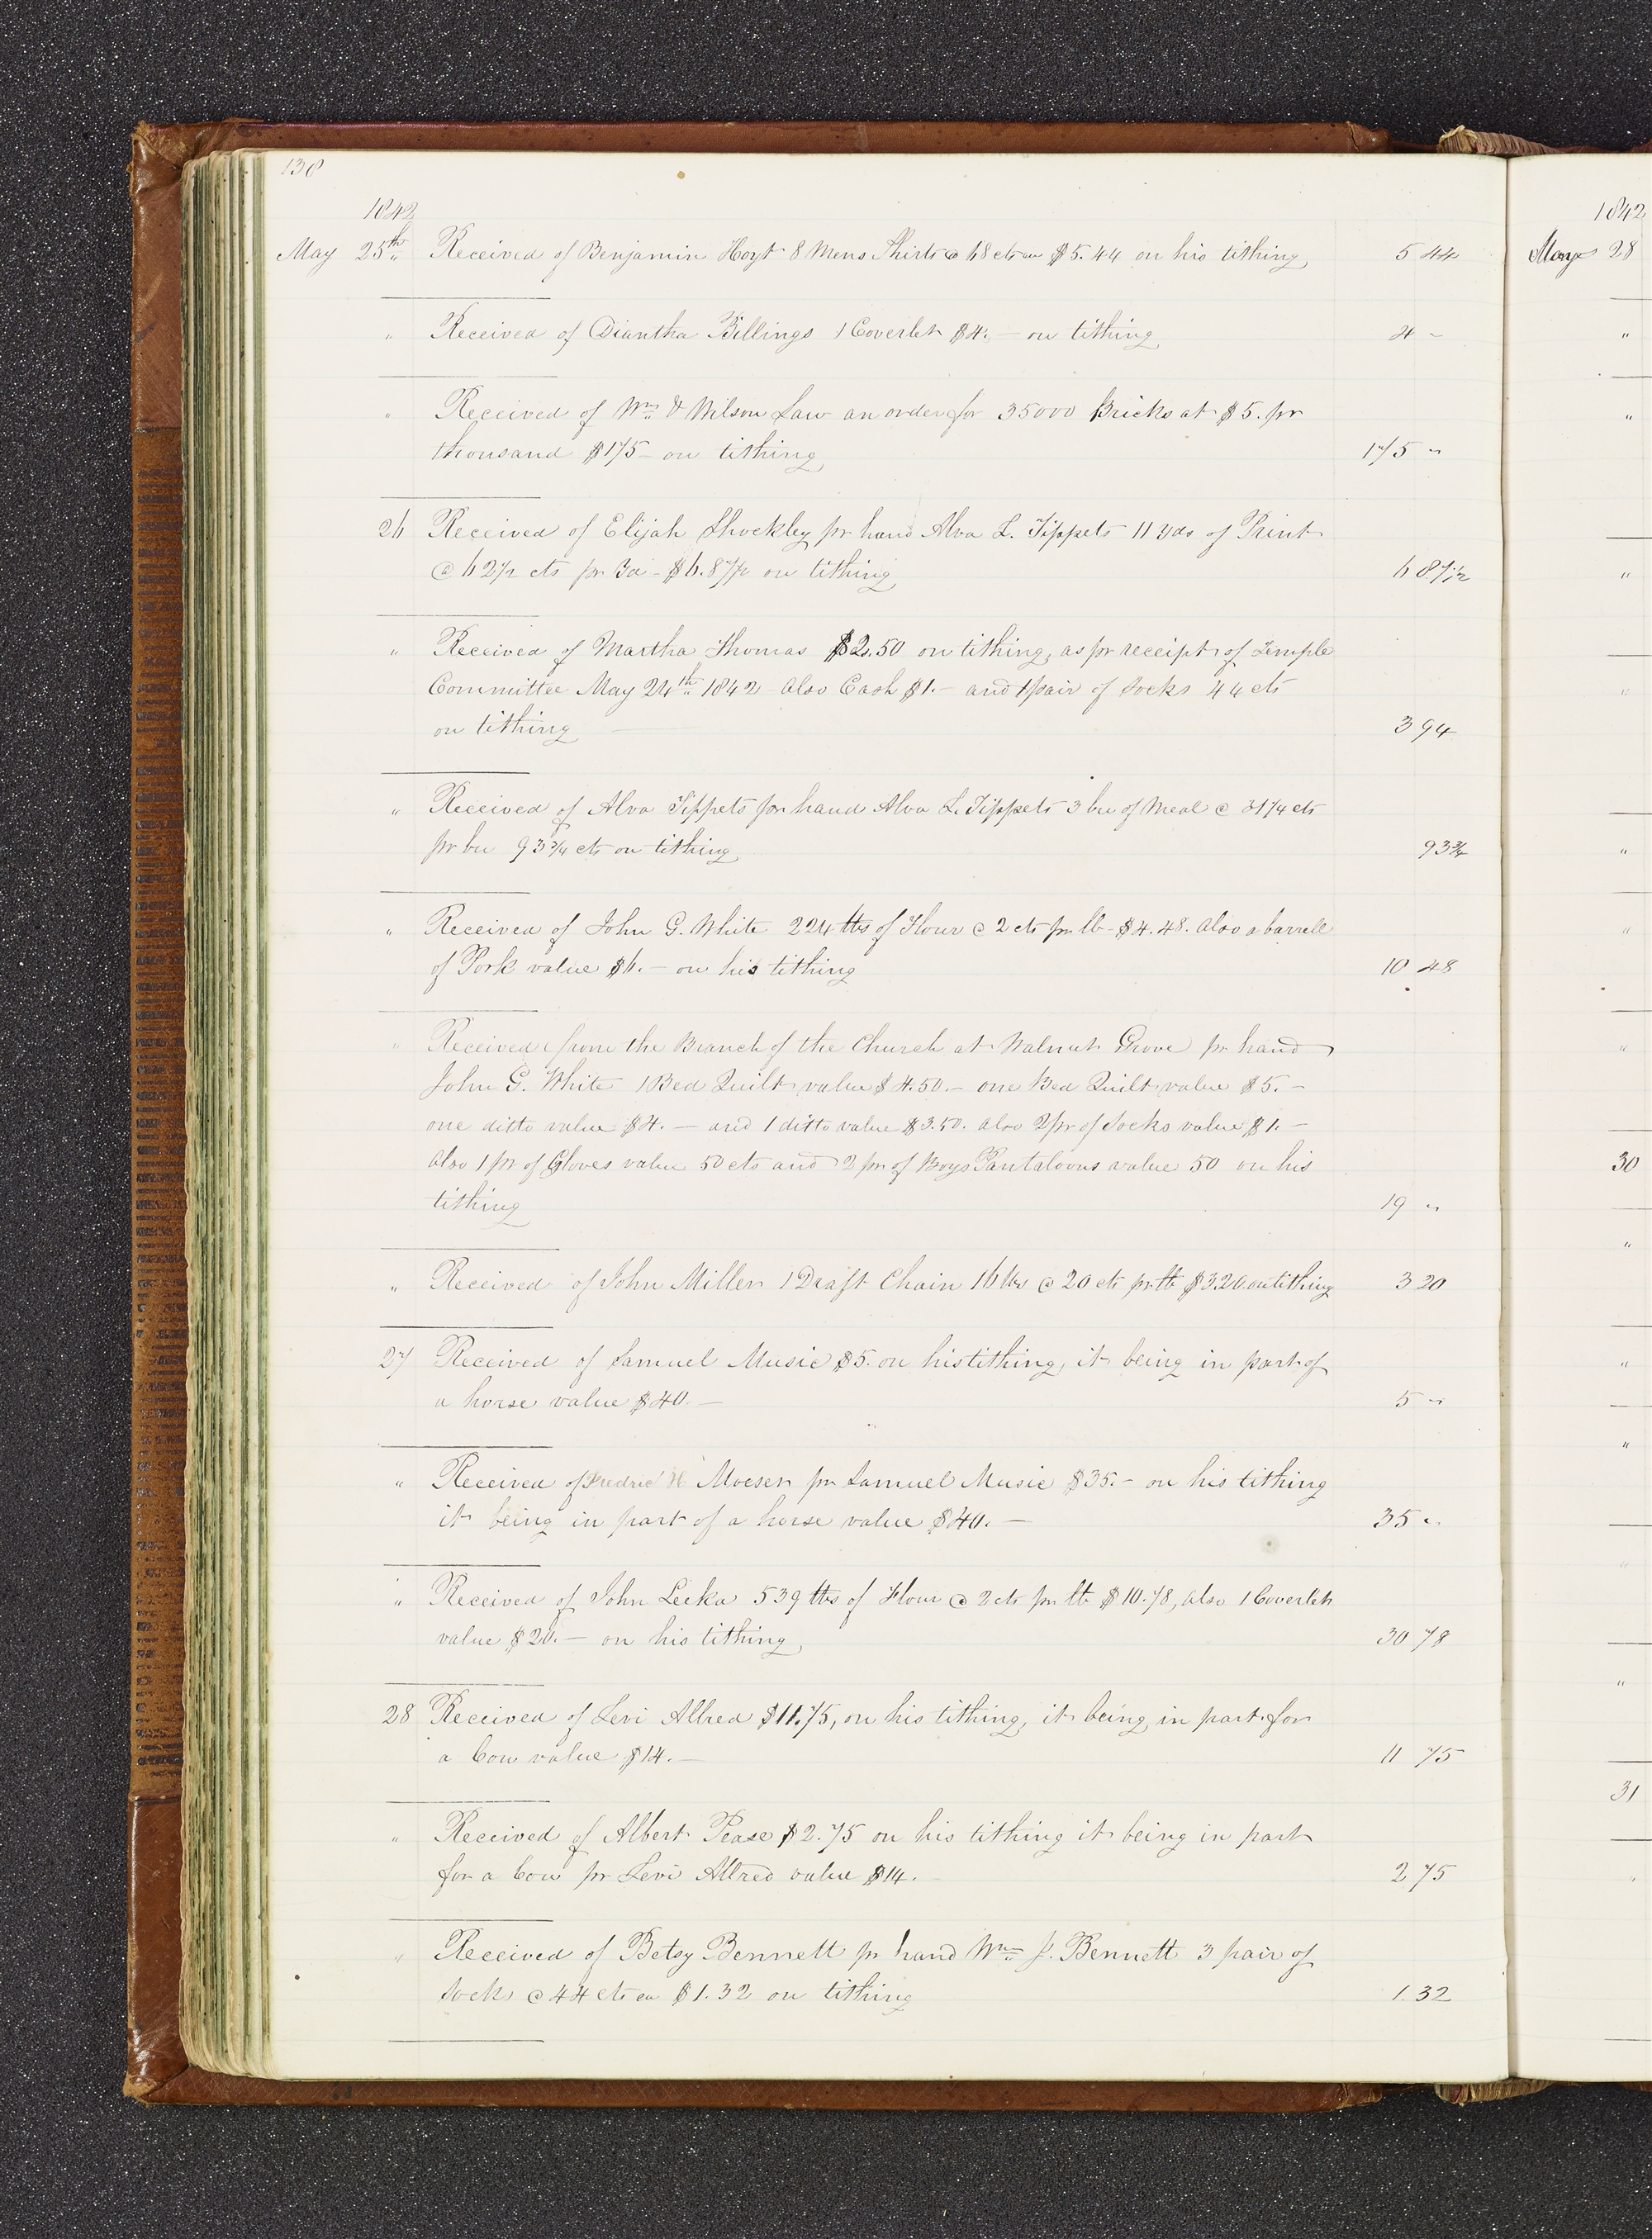 138
1842
May 25th Received of Benjamin Hoyt 8 Mens Shirts @ 68 cts ea $5.44 on his tithing 5 44
" Received of Diantha Billings 1 Coverlet $4.— on tithing 4 "
" Received of Wm & Wilson Law an order for 35000 Bricks at $5. pr
thousand $175— on tithing 175 "
26 Received of Elijah Shockley pr hand Alva L. Tippets 11 yds of Print
@ 62½ cts pr yd - $6.87½ on tithing 6 87½
" Received of Martha Thomas $2.50 on tithing, as pr receipt of Temple
Committee May 24th 1842 also Cash $1.— and 1 pair of Socks 44 cts
on tithing 3 94
" Received of Alva Tippets pr hand Alva L. Tippets 3 bu of Meal @ 31¼ cts
pr bu 93¾ cts on tithing 93¾
" Received of John G. White 224 lbs of Flour @ 2 cts pr lb - $4.48. also a barrell
of Pork value $6.— on his tithing 10 48
" Received from the Branch of the Church at Walnut Grove pr hand
John G. White 1 Bed Quilt value $4.50.— one Bed Quilt value $5.—
one ditto value $4.— and 1 ditto value $3.50. also 2 pr of Socks value $1.—
also 1 pr of Gloves value 50 cts and 2 pr of Boys Pantaloons value 50 on his
tithing 19 "
" Received of John Miller 1 Draft Chain 16 lbs @ 20 cts pr lb $3.20 on tithing 3 20
27 Received of Samuel Music $5. on his tithing, it being in part of
a horse value $40.— 5 "
" Received of Fredric H Moeser pr Samuel Music $35.— on his tithing
it being in part of a horse value $40.— 35 "
" Received of John Lecka 539 lbs of Flour @ 2 cts pr lb $10.78, also 1 Coverlet
value $20.— on his tithing, 30 78
28 Received of Levi Allred $11.75, on his tithing, it being in part for
a Cow value $14.— 11 75
" Received of Albert Pease $2.75 on his tithing it being in part
for a Cow pr Levi Allred value $14. 2 75
" Received of Betsy Bennett pr hand Wm J. Bennett 3 pair of
Socks @ 44 cts ea $1.32 on tithing 1.32
1842
May 28
"
"
"
"
"
"
"
30
"
"
"
"
"
31
"